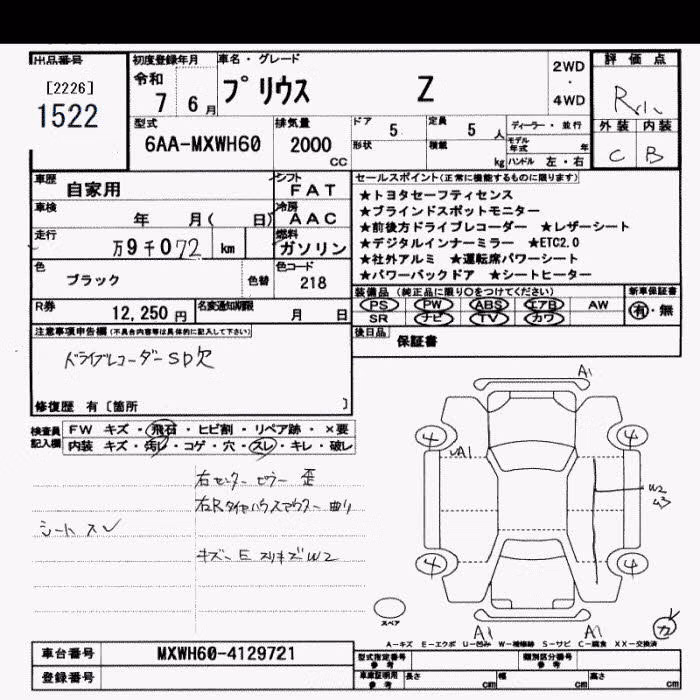 出品番号
[2226]
1522
初度登録年月
令和
7 6 月
車名・グレード
プリウス Z
2WD
・
4WD
評価点
R
外装 内装
C B
型式
6AA-MXWH60
排気量
2000
cc
ドア 5
定員 5 人
形状
積載 kg
ディーラー・並行
モデル年式 年
ハンドル 左・右
車歴
自家用
シフト
FAT
車検
年 月( 日)
冷房
AAC
走行
万9千072 km
燃料
ガソリン
色
ブラック
色替
色コード
218
R券
12,250 円
名変通知期限
月 日
セールスポイント(正常に機能するものに限ります)
★トヨタセーフティセンス
★ブラインドスポットモニター
★前後方ドライブレコーダー ★レザーシート
★デジタルインナーミラー ★ETC2.0
★社外アルミ ★運転席パワーシート
★パワーバックドア ★シートヒーター
装備品(純正品に限り○をつけてください)
PS PW ABS エアB AW
SR ナビ TV カワ
新車保証書
有・無
後日品
保証書
注意事項申告欄(不具合内容等は具体的に記入して下さい)
ドライブレコーダーSD欠
修復歴 有〔箇所 〕
検査員記入欄
FW キズ・飛石・ヒビ割・リペア跡・×要
内装 キズ・汚レ・コゲ・穴・スレ・キレ・破レ
右センターピラー 歪
右Rタイヤハウスアウター 曲り
シート スレ
キズ～E スリキズ W2
A1
4
4
A1
W2
4
4
A1
スペア
A-キズ E-エクボ U-凹み W-補修跡 S-サビ C-腐食 XX-交換済
車台番号
MXWH60-4129721
登録番号
型式指定番号
参考
類別区分番号
参考
車庫証明用
参考
長さ cm
幅 cm
高さ cm